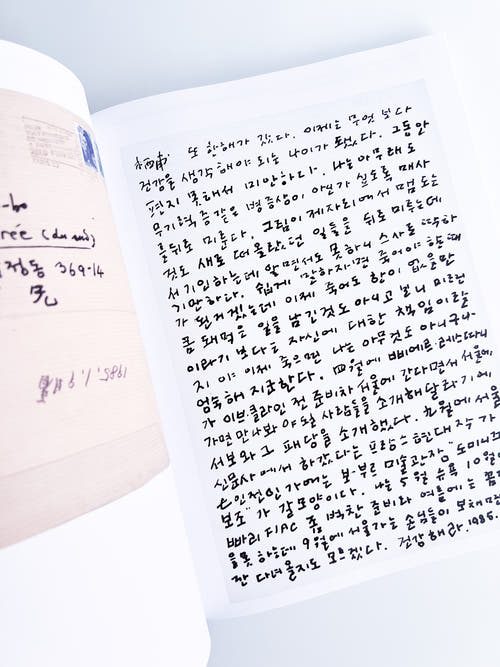 -bo
rée (du sud)
정동 369-14
兄
1985. 1. 9
栖甫. 또 한해가 갔다. 이제는 무엇보다
건강을 생각해야 되는 나이가 됐었다. 그동안
편지 못해서 미안하다. 나는 아무래도
무기력증 같은 병증상이 아닌가 싶도록 매사
를 뒤로 미룬다. 그림이 제자리에서 맴도는
것도 새로 떠올랐던 일들을 뒤로 미루는데
서 기인하는데 알면서도 못하니 스스로
기만하다. 쉽게 "잘하자"면 죽어야 할 때
가 된거겠는데 이제 죽어도 한이 없을만
큼 돼먹은 일을 남긴것도 아니고 보니 미련
이라기 보다는 자신에 대한 책임이랄
지 이야 이제 죽으면 나는 아무것도 아니구나
엄숙해 지곤한다. 四월에 삐에르·레스따니
가 이브클라인 전 준비차 서울에 간다면서 서울에
가면 만나봐야 될 사람들을 소개해달라기에,
서보와 그 패당을 소개했다. 九월에 서울
신문사에서 하겠다는 프랑스 현대작가
은 인전인가에는 보·부르 미술관장 "도미니끄
보조"가 갈모양이다. 나는 5월 뉴욕 10월
빠리 FIAC 좀 벅찬 준비라 여름에는 꼼
을 못하는데 9월에 서울가는 손님들이 보채면
잔 다녀올지도 모르겠다. 건강해라. 1985.